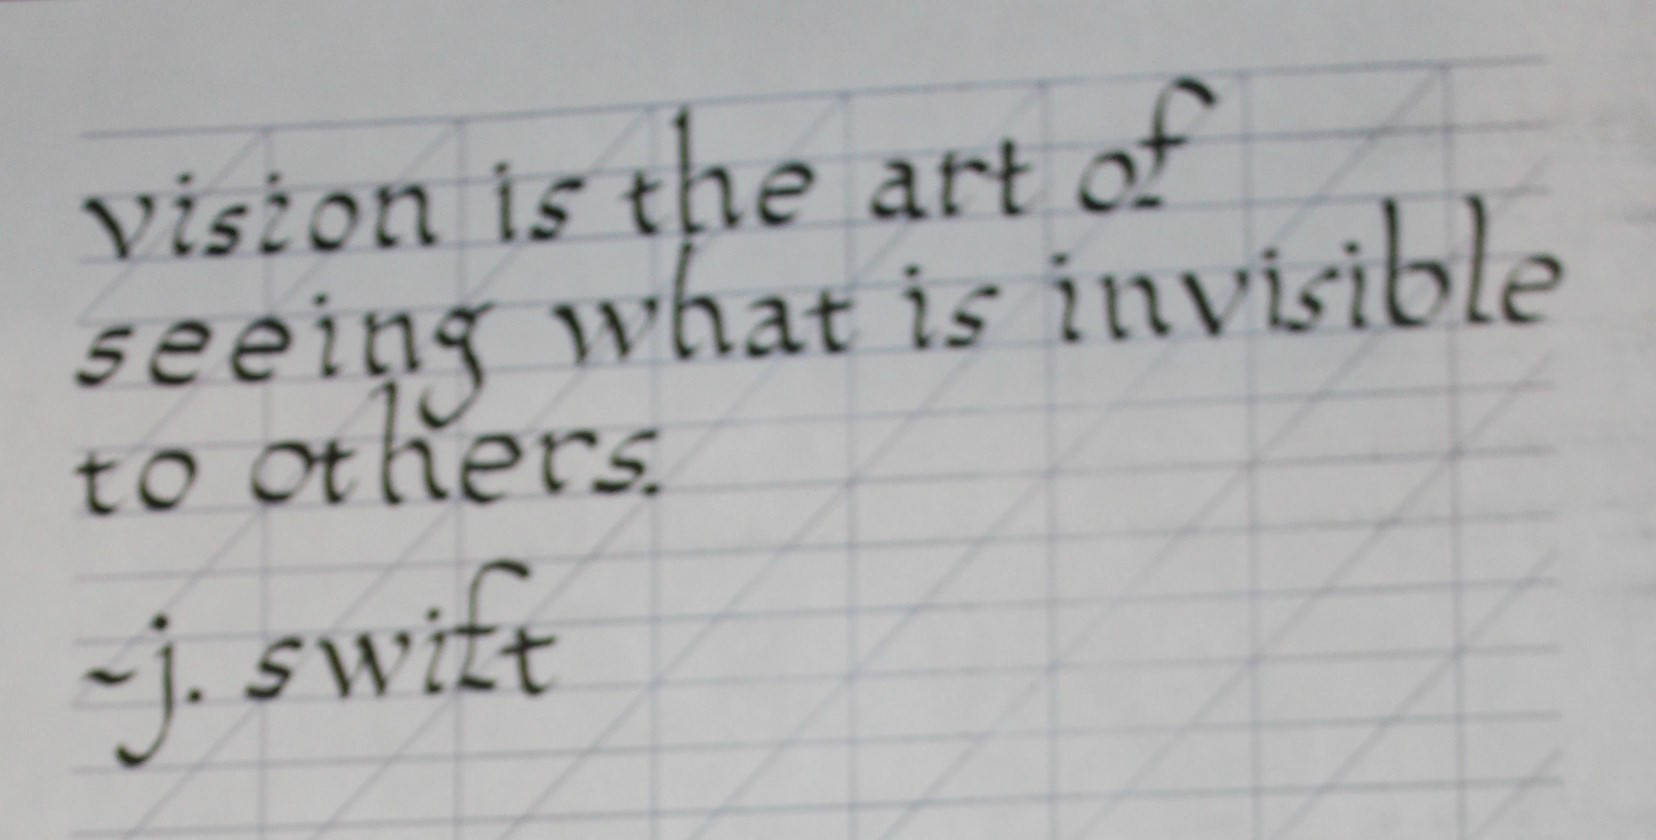 vision is the art of
seeing what is invisible
to others.
~j. swift